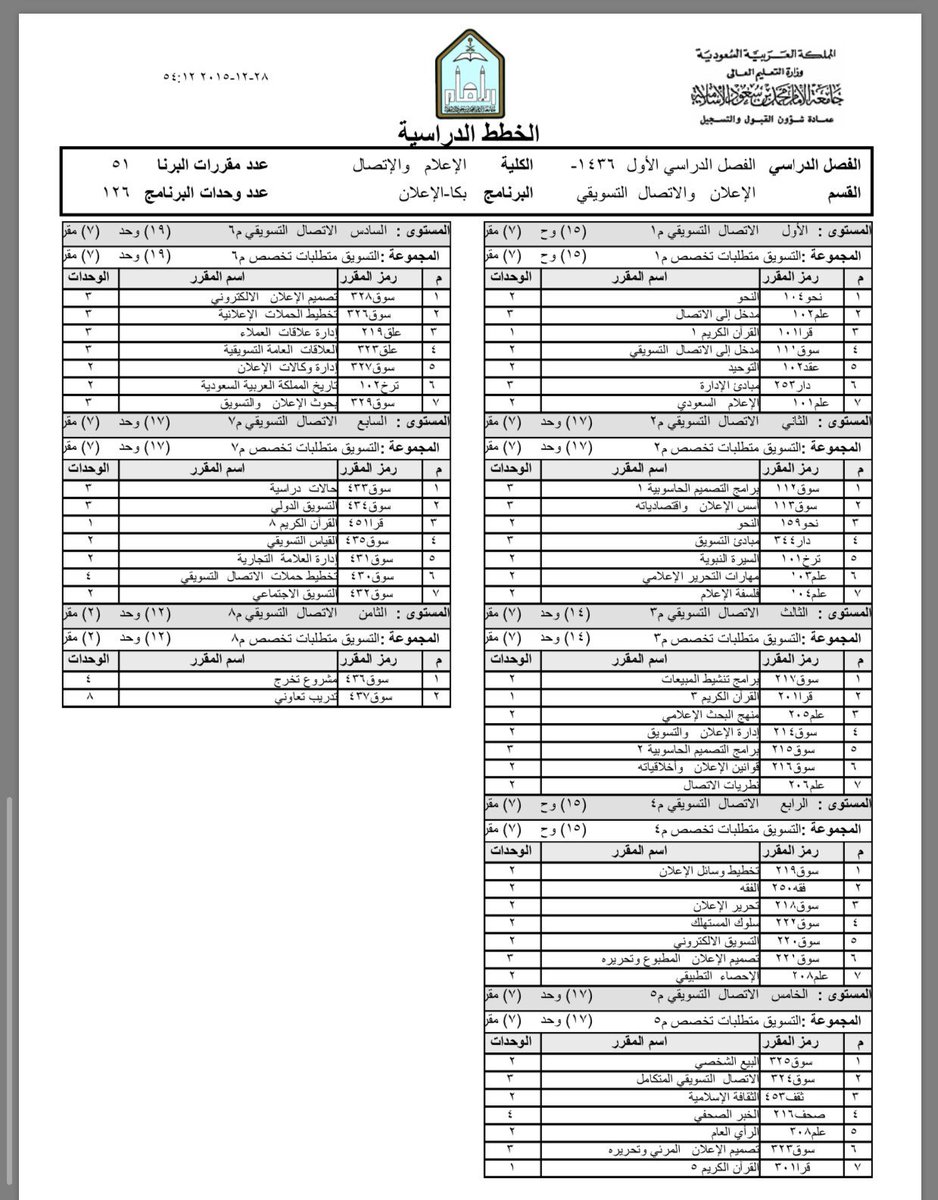 المملكة العربية السعودية
وزارة التعليم العالى
جامعة الإمام محمد بن سعود الإسلامية
عمادة شؤون القبول والتسجيل
٥٤:١٢ ٢٠١٥-١٢-٢٨
الخطط الدراسية
الفصل الدراسي الفصل الدراسي الأول ١٤٣٦- الكلية الإعلام والإتصال عدد مقررات البرنا ٥١
القسم الإعلان والاتصال التسويقي البرنامج بكا-الإعلان عدد وحدات البرنامج ١٢٦
المستوى : الأول الاتصال التسويقي م١ (١٥) وح (٧) مقر
المجموعة :التسويق متطلبات تخصص م١ (١٥) وح (٧) مقر
م رمز المقرر اسم المقرر الوحدات
١ نحو١٠٤ النحو ٢
٢ علم١٠٢ مدخل إلى الاتصال ٣
٣ قرا١٠١ القرآن الكريم ١ ١
٤ سوق١١١ مدخل إلى الاتصال التسويقي ٢
٥ عقد١٠٢ التوحيد ٢
٦ دار٢٥٣ مبادئ الإدارة ٣
٧ علم١٠١ الإعلام السعودي ٢
المستوى : الثاني الاتصال التسويقي م٢ (١٧) وحد (٧) مقر
المجموعة :التسويق متطلبات تخصص م٢ (١٧) وحد (٧) مقر
م رمز المقرر اسم المقرر الوحدات
١ سوق١١٢ برامج التصميم الحاسوبية ١ ٣
٢ سوق١١٣ أسس الإعلان واقتصادياته ٣
٣ نحو١٥٩ النحو ٢
٤ دار٣٤٤ مبادئ التسويق ٣
٥ ترخ١٠١ السيرة النبوية ٢
٦ علم١٠٣ مهارات التحرير الإعلامي ٢
٧ علم١٠٤ فلسفة الإعلام ٢
المستوى : الثالث الاتصال التسويقي م٣ (١٤) وحد (٧) مقر
المجموعة :التسويق متطلبات تخصص م٣ (١٤) وحد (٧) مقر
م رمز المقرر اسم المقرر الوحدات
١ سوق٢١٧ برامج تنشيط المبيعات ٢
٢ قرا٢٠١ القرآن الكريم ٣ ١
٣ علم٢٠٥ منهج البحث الإعلامي ٢
٤ سوق٢١٤ إدارة الإعلان والتسويق ٢
٥ سوق٢١٥ برامج التصميم الحاسوبية ٢ ٣
٦ سوق٢١٦ قوانين الإعلان وأخلاقياته ٢
٧ علم٢٠٦ نظريات الاتصال ٢
المستوى : الرابع الاتصال التسويقي م٤ (١٥) وح (٧) مقر
المجموعة :التسويق متطلبات تخصص م٤ (١٥) وح (٧) مقر
م رمز المقرر اسم المقرر الوحدات
١ سوق٢١٩ تخطيط وسائل الإعلان ٢
٢ فقه٢٥٠ الفقه ٢
٣ سوق٢١٨ تحرير الإعلان ٢
٤ سوق٢٢٢ سلوك المستهلك ٢
٥ سوق٢٢٠ التسويق الالكتروني ٢
٦ سوق٢٢١ تصميم الإعلان المطبوع وتحريره ٣
٧ علم٢٠٨ الإحصاء التطبيقي ٢
المستوى : الخامس الاتصال التسويقي م٥ (١٧) وحد (٧) مقر
المجموعة :التسويق متطلبات تخصص م٥ (١٧) وحد (٧) مقر
م رمز المقرر اسم المقرر الوحدات
١ سوق٣٢٥ البيع الشخصي ٢
٢ سوق٣٢٤ الاتصال التسويقي المتكامل ٣
٣ ثقف٤٥٣ الثقافة الإسلامية ٢
٤ صحف٢١٦ الخبر الصحفي ٤
٥ علم٣٠٨ الرأي العام ٢
٦ سوق٣٢٣ تصميم الإعلان المرئي وتحريره ٣
٧ قرا٣٠١ القرآن الكريم ٥ ١
المستوى : السادس الاتصال التسويقي م٦ (١٩) وحد (٧) مقر
المجموعة :التسويق متطلبات تخصص م٦ (١٩) وحد (٧) مقر
م رمز المقرر اسم المقرر الوحدات
١ سوق٣٢٨ تصميم الإعلان الالكتروني ٣
٢ سوق٣٢٦ تخطيط الحملات الإعلانية ٣
٣ علق٢١٩ إدارة علاقات العملاء ٣
٤ علق٣٢٣ العلاقات العامة التسويقية ٣
٥ سوق٣٢٧ إدارة وكالات الإعلان ٢
٦ ترخ١٠٢ تاريخ المملكة العربية السعودية ٢
٧ سوق٣٢٩ بحوث الإعلان والتسويق ٣
المستوى : السابع الاتصال التسويقي م٧ (١٧) وحد (٧) مقر
المجموعة :التسويق متطلبات تخصص م٧ (١٧) وحد (٧) مقر
م رمز المقرر اسم المقرر الوحدات
١ سوق٤٣٣ حالات دراسية ٣
٢ سوق٤٣٤ التسويق الدولي ٣
٣ قرا٤٥١ القرآن الكريم ٨ ١
٤ سوق٤٣٥ القياس التسويقي ٢
٥ سوق٤٣١ إدارة العلامة التجارية ٢
٦ سوق٤٣٠ تخطيط حملات الاتصال التسويقي ٤
٧ سوق٤٣٢ التسويق الاجتماعي ٢
المستوى : الثامن الاتصال التسويقي م٨ (١٢) وحد (٢) مقر
المجموعة :التسويق متطلبات تخصص م٨ (١٢) وحد (٢) مقر
م رمز المقرر اسم المقرر الوحدات
١ سوق٤٣٦ مشروع تخرج ٤
٢ سوق٤٣٧ تدريب تعاوني ٨